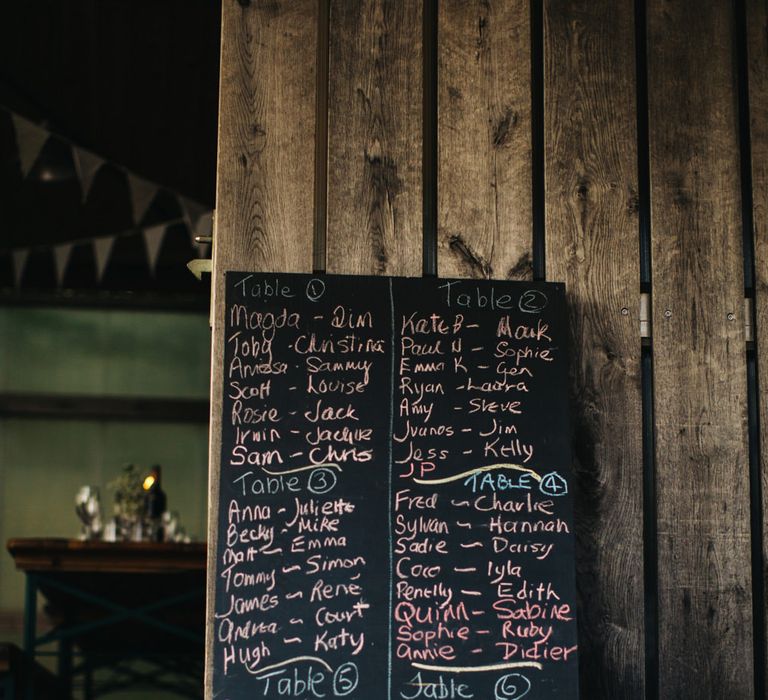 Table 1
Magda - Dim
Toby - Christina
Aneesa - Sammy
Scott - Louise
Rosie - Jack
Irwin - Jackie
Sam - Chris
Table 2
Kate B - Mark
Paul N - Sophie
Emma K - Gen
Ryan - Laura
Amy - Steve
Jvanos - Jim
Jess - Kelly
JP
Table 3
Anna - Juliette
Becky - Mike
Matt - Emma
Tommy - Simon
James - René
Andrea - Court
Hugh - Katy
TABLE 4
Fred - Charlie
Sylvan - Hannah
Sadie - Daisy
Coco - Iyla
Penelly - Edith
Quinn - Sabine
Sophie - Ruby
Annie - Didier
Table 5
Table 6